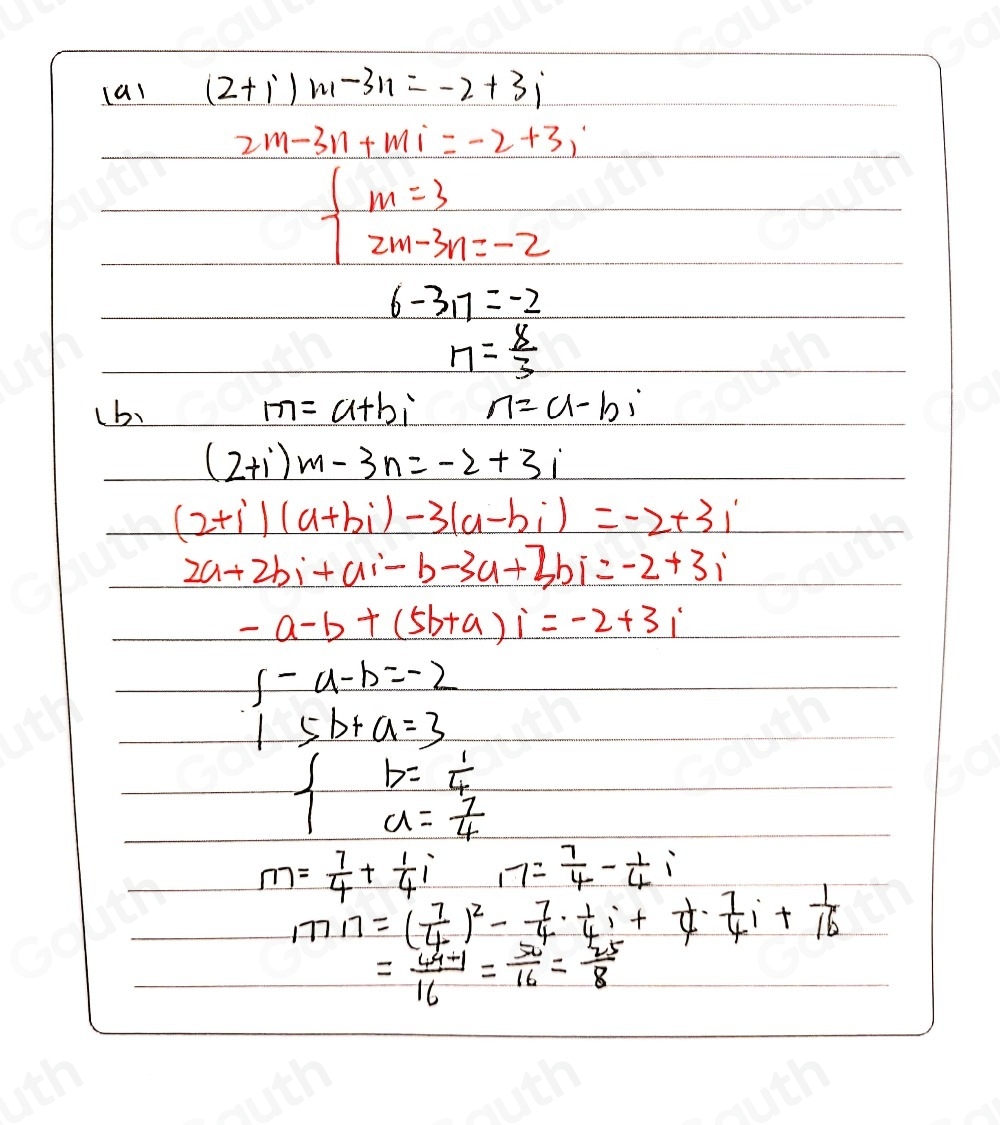 (a) (2+i)m-3n=-2+3i
2m-3n+mi=-2+3i
{ m=3
2m-3n=-2
6-3n=-2
n=8/3
(b) m=a+bi n=a-bi
(2+i)m-3n=-2+3i
(2+i)(a+bi)-3(a-bi)=-2+3i
2a+2bi+ai-b-3a+3bi=-2+3i
-a-b+(5b+a)i=-2+3i
{ -a-b=-2
5b+a=3
{ b=1/4
a=7/4
m=7/4+1/4i n=7/4-1/4i
mn=(7/4)²-7/4·1/4i+1/4·7/4i+1/16
=49+1/16=50/16=25/8
Gauth